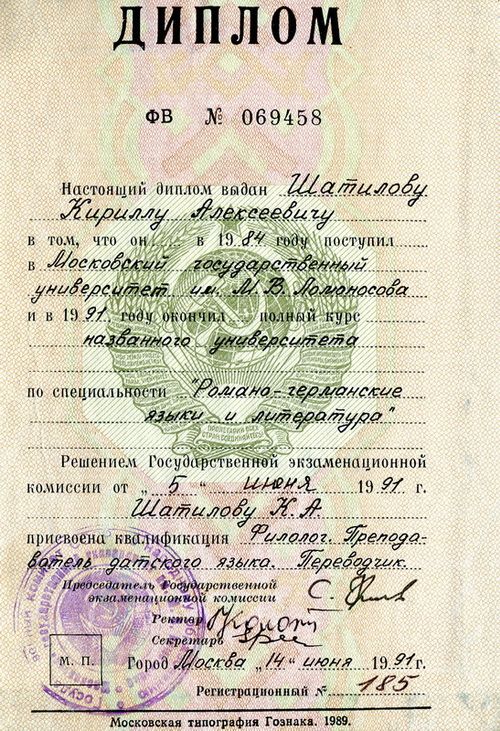 ДИПЛОМ
ФВ № 069458
Настоящий диплом выдан Шатилову
Кириллу Алексеевичу
в том, что он в 1984 году поступил
в Московский государственный
университет им. М.В. Ломоносова
и в 1991 году окончил полный курс
названного университета
по специальности "Романо-германские
языки и литература"
Решением Государственной экзаменационной
комиссии от „5“ июня 1991 г.
Шатилову К.А.
присвоена квалификация Филолог. Препода-
ватель датского языка. Переводчик.
Председатель Государственной
экзаменационной комиссии
Ректор
Секретарь
М. П.
Город Москва „14“ июня 1991 г.
Регистрационный № 185
Московская типография Гознака. 1989.